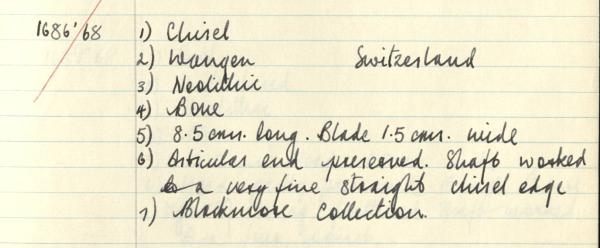 1686'68 1) Chisel
2) Wangen Switzerland
3) Neolithic
4) Bone
5) 8.5 cms. long. Blade 1.5 cms. wide
6) Articular end preserved. Shaft worked
to a very fine straight chisel edge
7) Blackmore Collection.